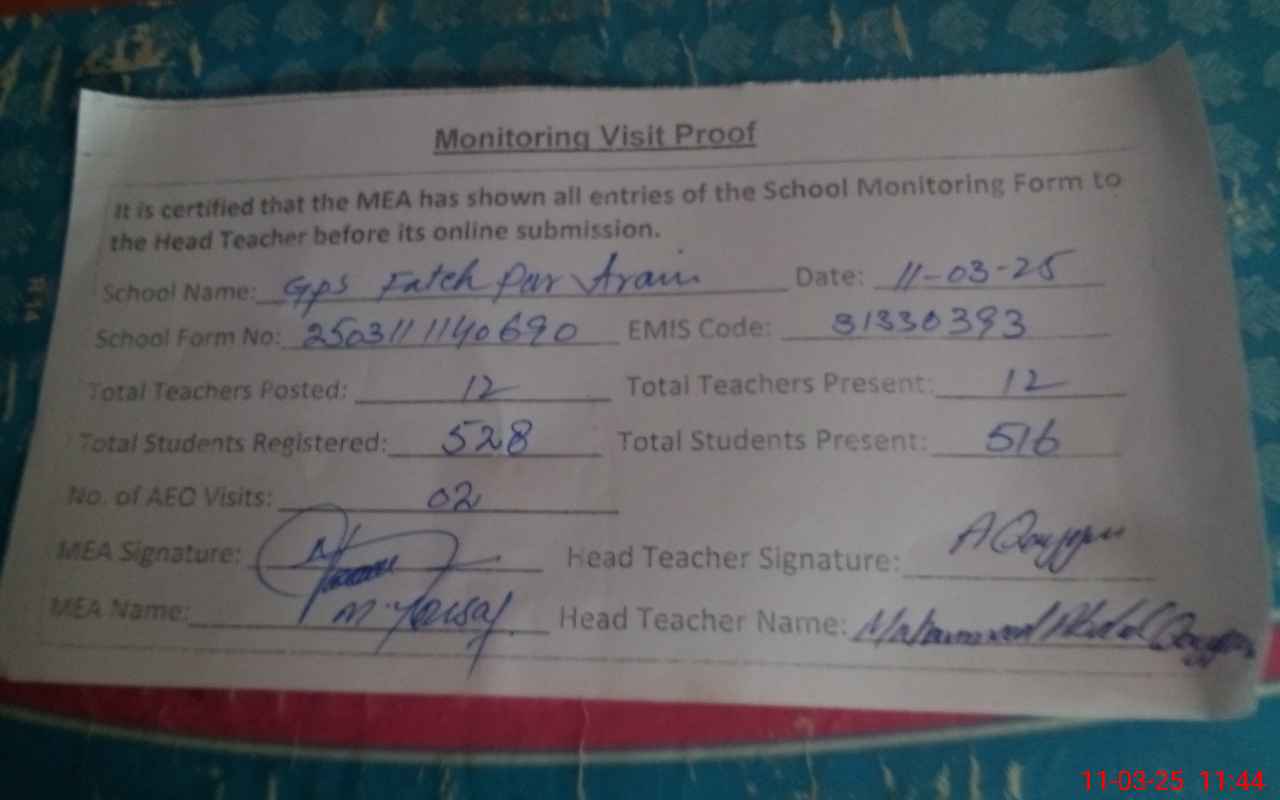 Monitoring Visit Proof
It is certified that the MEA has shown all entries of the School Monitoring Form to
the Head Teacher before its online submission.
School Name: GPS Fateh Pur Arain Date: 11-03-25
School Form No: 250311 1140690 EMIS Code: 31330393
Total Teachers Posted: 12 Total Teachers Present: 12
Total Students Registered: 528 Total Students Present: 516
No. of AEO Visits: 02
MEA Signature: Head Teacher Signature: A Qayyum
MEA Name: M. Yousaf Head Teacher Name: Muhammad Abdul Qayyum
11-03-25 11:44